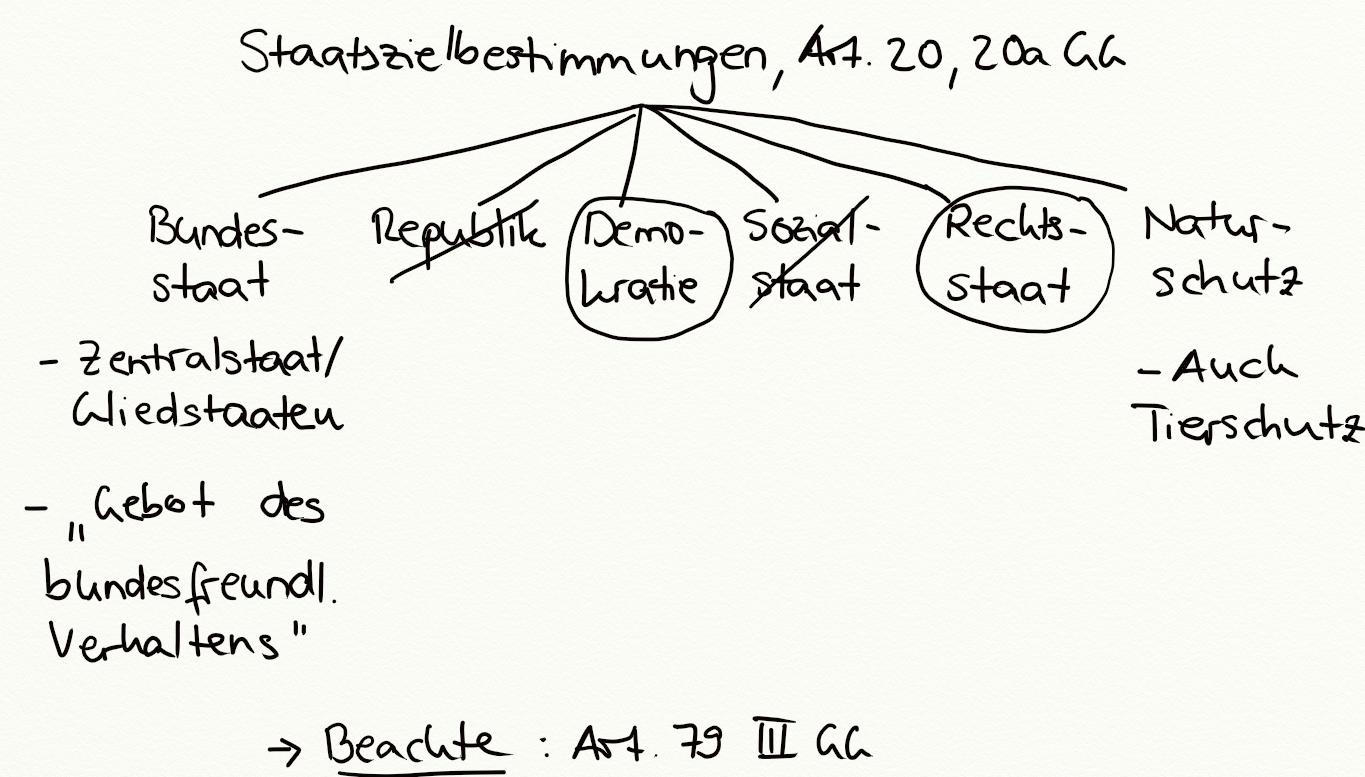 Staatszielbestimmungen, Art. 20, 20a GG
Bundes-
staat
Republik
Demo-
kratie
Sozial-
staat
Rechts-
staat
Natur-
schutz
- Zentralstaat/
Gliedstaaten
- „Gebot des
bundesfreundl.
Verhaltens"
- Auch
Tierschutz
→ Beachte : Art. 79 III GG